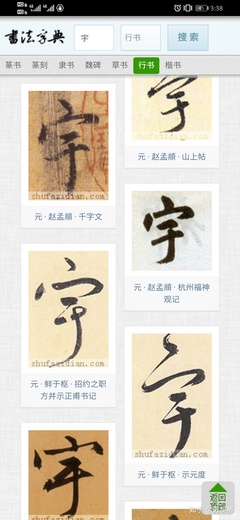 3:38
書法字典
字
书写
搜索
篆书 篆刻 隶书 魏碑 草书 行书 楷书
宇
shufazidian.com
元 · 赵孟頫 · 千字文
宇
shufazidian.com
元 · 赵孟頫 · 山上帖
宇
元 · 赵孟頫 · 杭州福神
观记
宇
shufazidian.com
元 · 鲜于枢 · 招约之职
方并示正甫书记
宇
shufazidian.com
元 · 鲜于枢 · 示元度
宇
返回
顶部